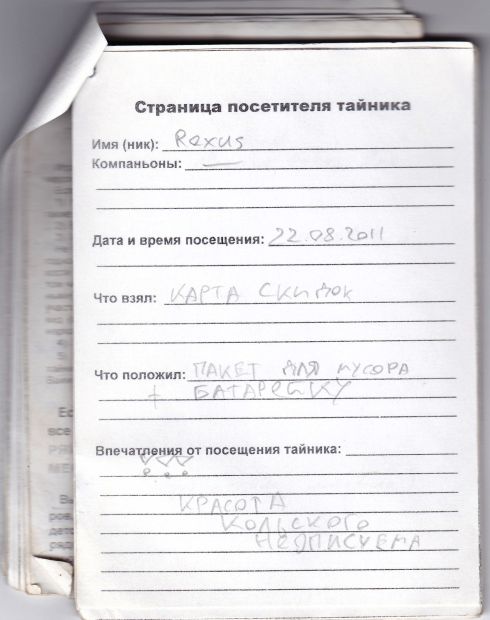 Страница посетителя тайника
Имя (ник): Rexus
Компаньоны: —
Дата и время посещения: 22.08.2011
Что взял: КАРТА СКИДОК
Что положил: ПАКЕТ ДЛЯ МУСОРА
+ БАТАРЕЙКУ
Впечатления от посещения тайника:
КРАСОТА
КОЛЬСКОГО
НЕОПИСУЕМА